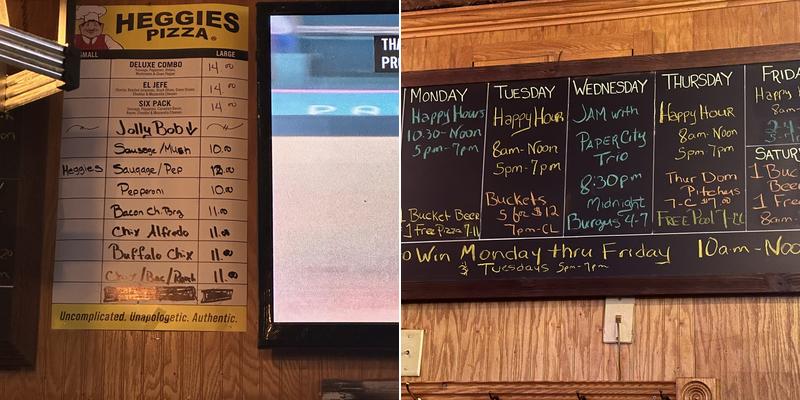 HEGGIES
PIZZA
SMALL LARGE
DELUXE COMBO 14.00
EL JEFE 14.00
SIX PACK 14.00
Jolly Bob ↓
Sausage/Mush 10.00
Heggies Saugage/Pep
Pepperoni 10.00
Bacon Ch. Brg 11.00
Chix Alfredo 11.00
Buffalo Chix 11.00
Chix/Bac/Ranch 11.00
Uncomplicated. Unapologetic. Authentic.
THA
PRO
MONDAY
Happy Hours
10:30-Noon
5pm-7pm
1 Bucket Beer
1 Free Pizza 7-11
TUESDAY
Happy Hour
8am-Noon
5pm-7pm
Buckets
5 for $12
7pm-CL
WEDNESDAY
JAM with
PAPER CITY
Trio
8:30pm
Midnight
Burgers 4-7
THURSDAY
Happy Hour
8am-Noon
5pm-7pm
Thur Dom
Pitchers
7-C $7.00
FREE Pool 7-CL
FRID
Happy H
8am-
SATUR
1 Buc
Beer
1 Free
8am-
o Win Monday thru Friday 10am-Noo
& Tuesdays 5pm-7pm